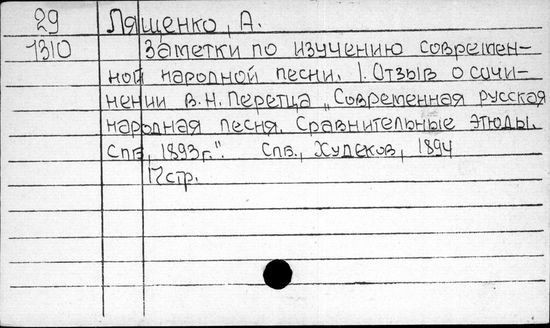 29 Лященко, А.
1310 Заметки по изучению современ-
ной народной песни. 1. Отзыв о сочи-
нении В.Н. Перетца „Современная русская
народная песня. Сравнительные этюды.
Спб., 1893г.". Спб., Худеков, 1894
17стр.